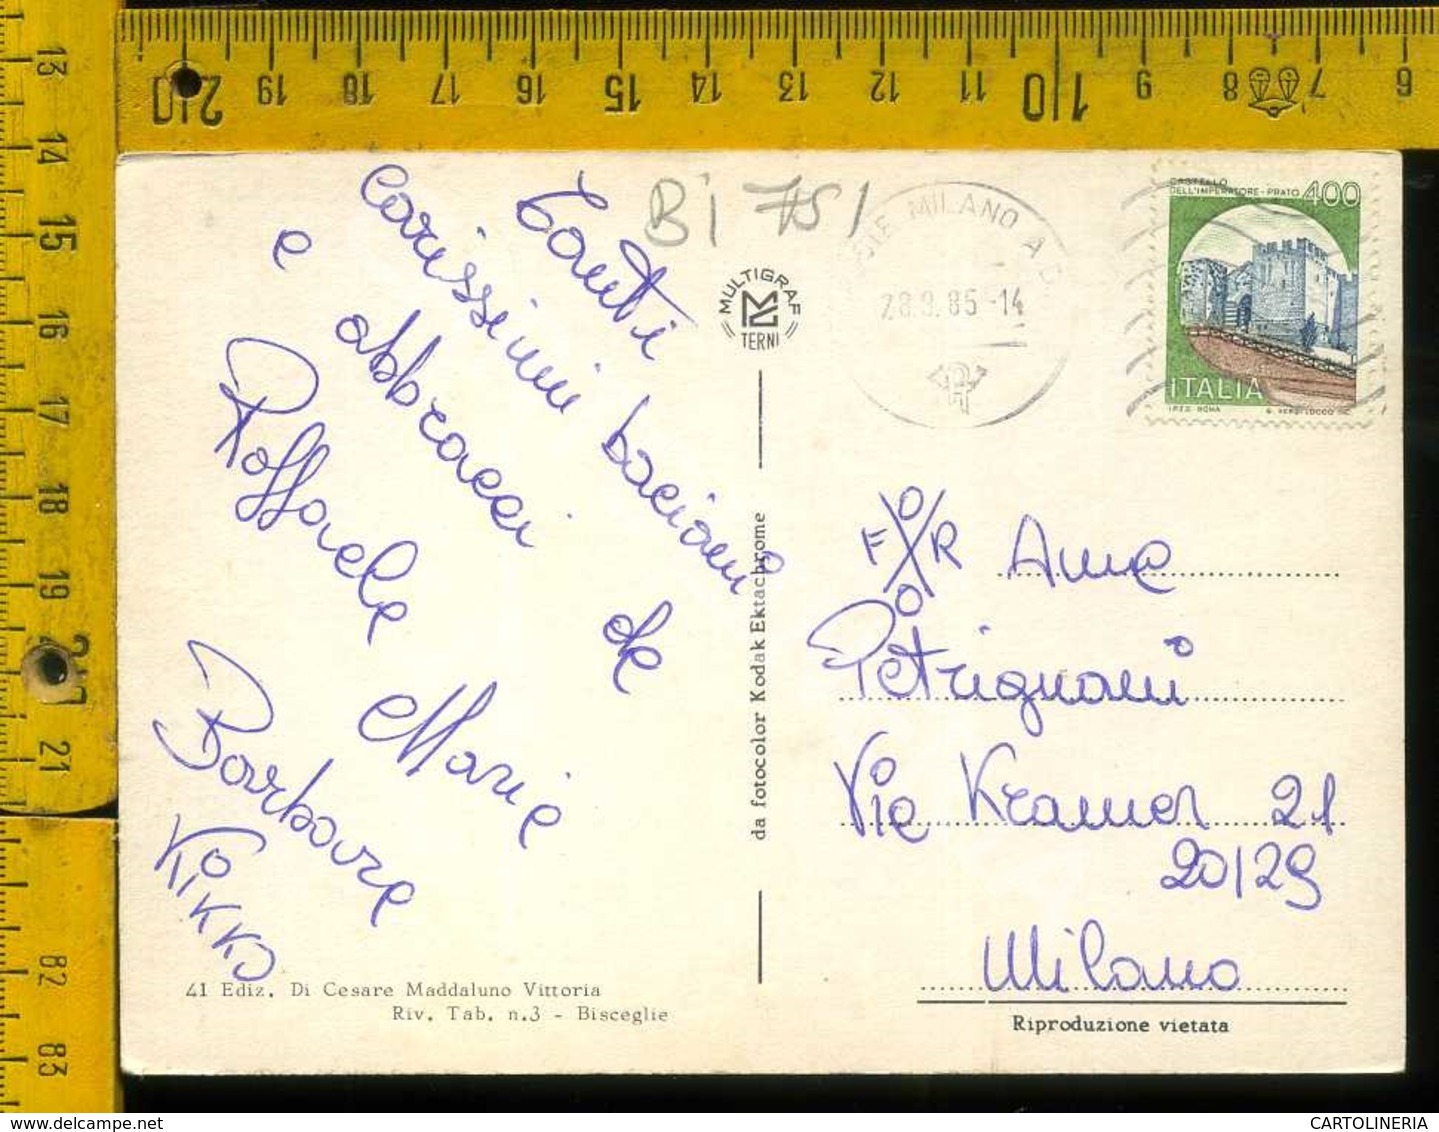 BI 751
MULTIGRAF
TERNI
MILANO A.D.
28.9.85-14
CASTELLO
DELL'IMPERATORE-PRATO 400
ITALIA
I.P.Z.S. ROMA
Tanti
carissimi bacioni
e abbracci da
Raffaele Maria
Barbara
Kikko
41 Ediz. Di Cesare Maddaluno Vittoria
Riv. Tab. n.3 - Bisceglie
da fotocolor Kodak Ektachrome
FOR
Petrignani
Via Kramer 21
20129
Milano
Riproduzione vietata
13
14
15
16
17
18
19
20
21
82
83
20
19
18
17
16
15
14
13
12
11
10
9
8
7
6
CARTOLINERIA
delcampe.net